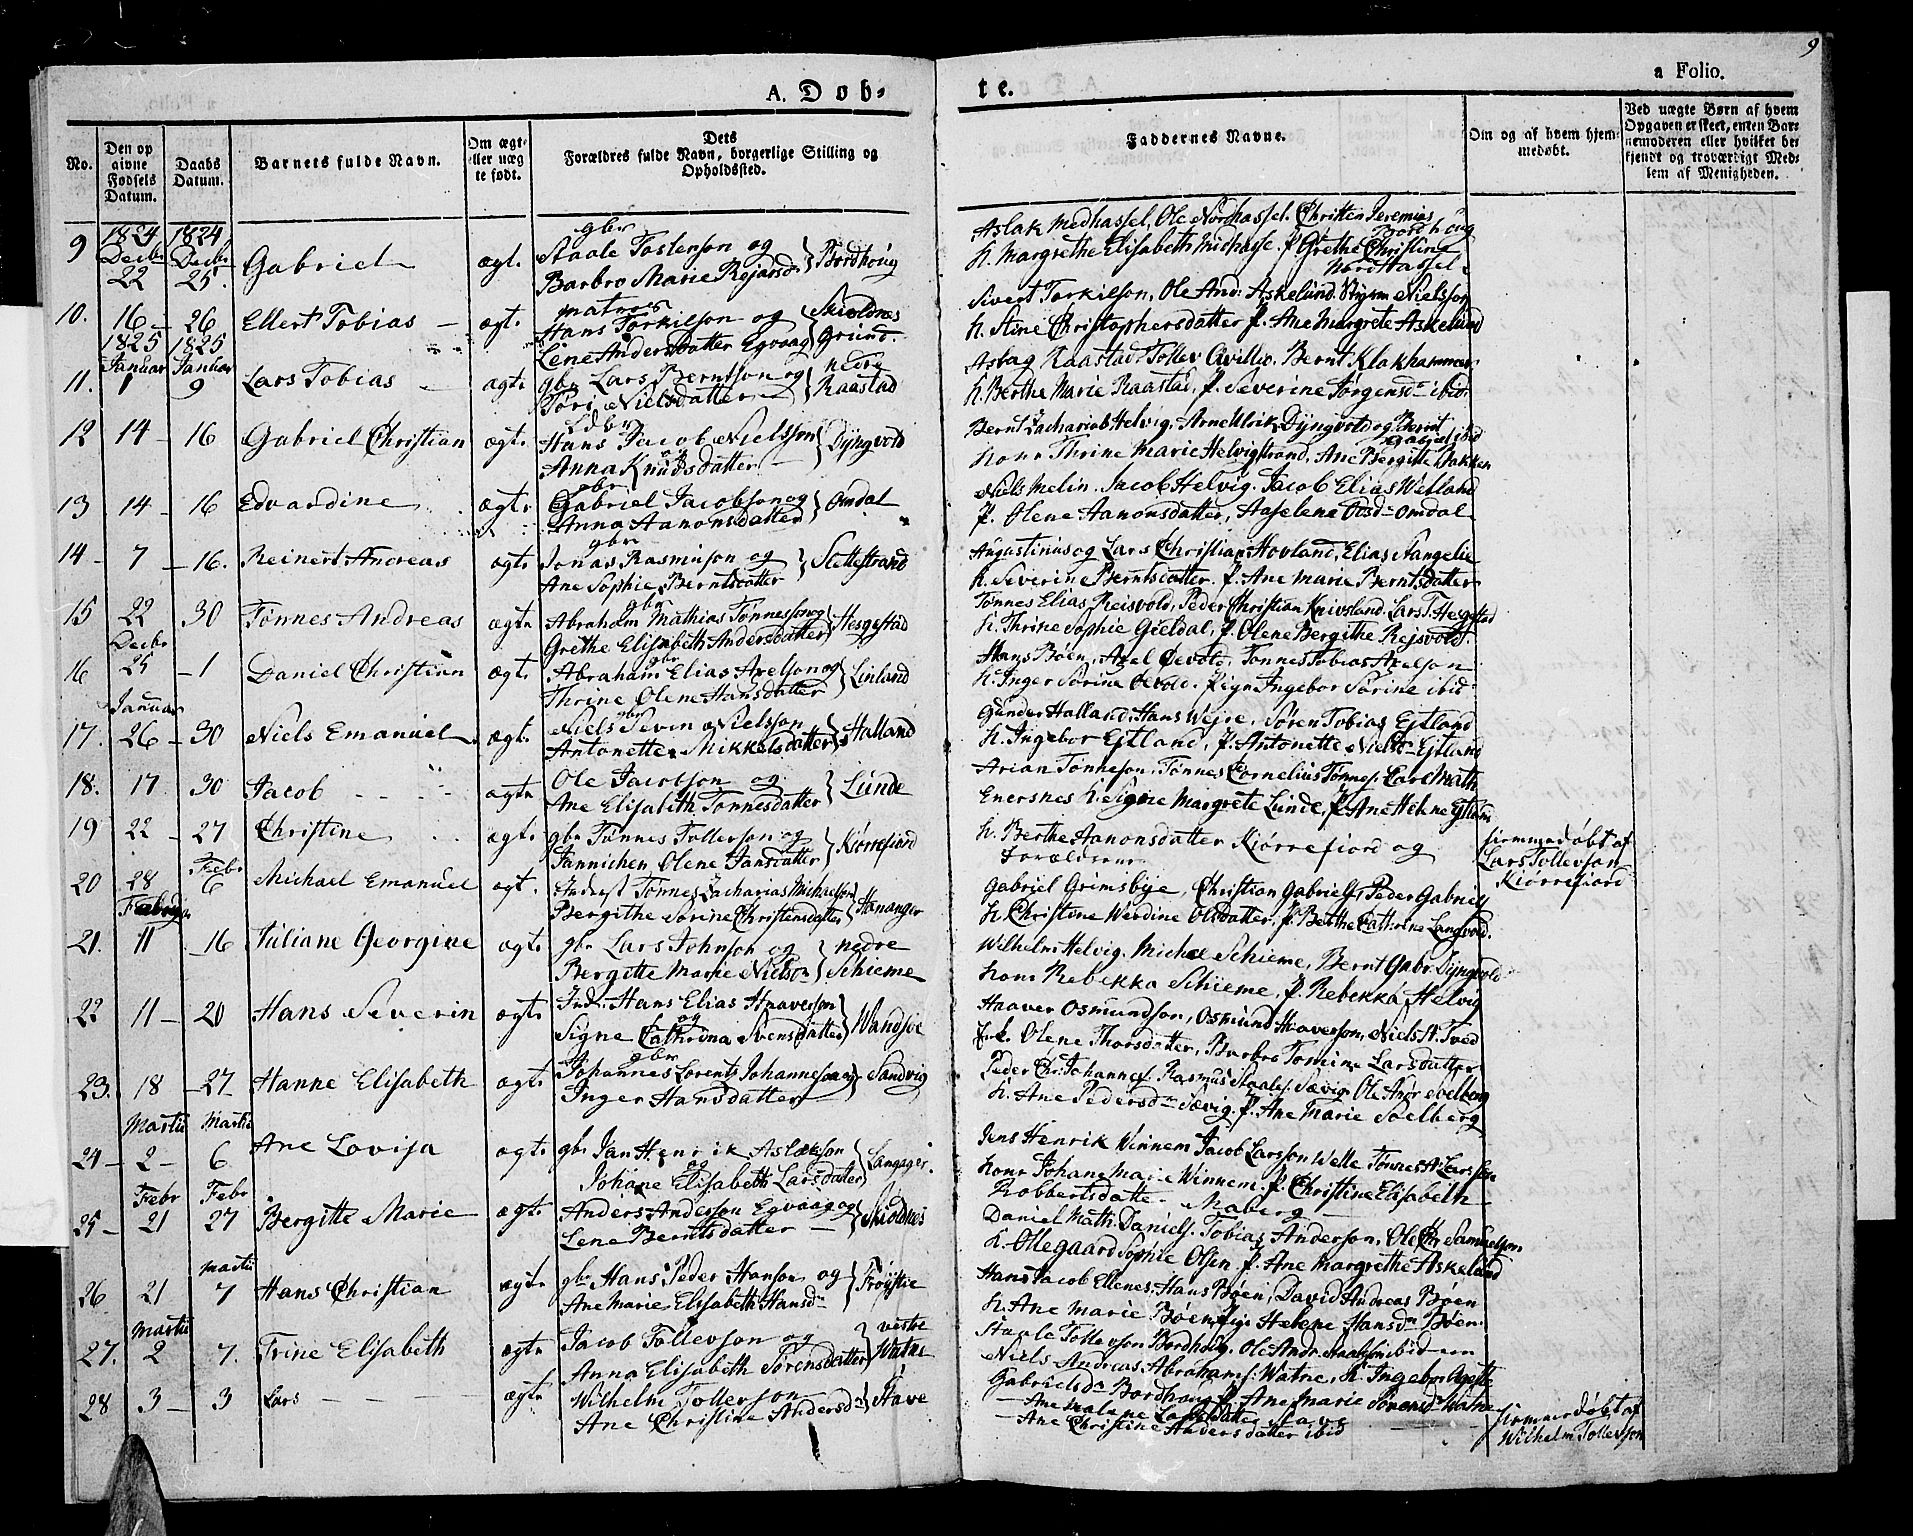 9
A. Døb-
te.
a Folio.
No.
Den op
givne
Fødsels
Datum.
Daabs
Datum.
Barnets fulde Navn.
Om ægt-
eller uæg
te født.
Dets
Forældres fulde Navn, borgerlige Stilling og
Opholdssted.
Faddernes Navne.
Om og af hvem hjem-
medøbt.
Ved uægte Børn af hvem
Opgaven er skeet, enten Bar-
nemoderen eller hvilket be-
kjendt og troværdigt Med-
lem af Menigheden.
1824 1824
9 Decbr 22 Decbr 25. Gabriel ægt. gbr Staale Tostenson og
Barbro Marie Rejarsd. Bordhoug
Aslak Medhassel, Ole Nordhassel. Christen Jeremias Bordhoug
K. Margrethe Elisabeth Midhasse. P. Grethe Christine
Nordhassel.
10. 16 - 26 Ellert Tobias ægt. matros Hans Torkilson og
Lene Andersdatter Egvaag Skioldnes Grund.
Sivert Torkilson, Ole And: Askelund. Nielsson
K. Stine Christophersdatter P. Ane Margrete Askelund
1825 1825
Januar Januar
11. 1 9 Lars Tobias ægt. gbr Lars Berntson og
Tori Nielsdatter nedre Raastad
Asbag Raastad Tollev Bernt Klakhammer
K. Berthe Marie Raastad, P. Severine Jørgensd. ibid.
12 14 - 16 Gabriel Christian ægt. Hans Jacob Nielsson
og Anna Knudsdatter Dyngvold
Bernt Zacharias Helvig, Arne Ulrik Dyngvold og Bernt
Gabriel ibid
Kone Thrine Marie Helvigstrand, Ane Bergitte Bakken
13 14 - 16 Edvardine ægt. gbr Gabriel Jacobson og
Anna Aanonsdatter Omdal
Niels Melin. Jacob Helvig. Jacob Elias Wetland
P. Olene Aanonsdatter, Aaselena Olsd. Omdal
14 - 7 - 16. Reinert Andreas ægt. gbr Jonas Rasmuson og
Ane Sophie Berntsdatter Slettestrand
Augustinus og Lars Christian Hovland, Elias Stangelie
K. Severine Berntsdatter. P. Ane Marie Berntsdatter
15 22 30 Tønnes Andreas ægt. gbr Abraham Mathias Tønnesson og
Grethe Elisabeth Andersdatter Hesgestad
Tønnes Elias Reisvold, Peder Christian Knivsland. Lars T. Hegestad
K. Thrine Sophie Gieldal, P. Olene Bergithe Rejsvold.
Decbr
16 25 - 1 Daniel Christian ægt. gbr Abraham Elias Axelson og
Thrine Olene Hansdatter Linland
Hans Bøen, Axel Tønnes Tobias Axelson
K. Inger Sørine Pigen Ingebor Sørine ibid
Januar
17. 26 - 30 Niels Emanuel ægt. gbr Niels Seven Nielsson
Antonette Mikkelsdatter Halland
Gunder Halland, Hans Wejre, Søren Tobias Ejtland
K. Ingebor Ejtland, P. Antonette Nielsd. Ejtland
18. 17 30 Jacob ægt. Ole Jacobson og
Ane Elisabeth Tønnesdatter Lunde
Arian Tønneson, Tønnes Cornelius Tønnes. Carl Math
Enersnes K. Signe Margrete Lunde, P. Ane Helene Ejtland
19 22 - 27 Christine ægt. gbr Tønnes Tollevson og
Jannichen Olene Jansdatter Kiørrefiord
K. Berthe Aanonsdatter Kiørrefiord og
Forældrene
hjemmedøbt af
Lars Tollevson
Kiørrefiord
Febr
20 28 6 Michael Emanuel ægt. Inderst Tønnes Zacharias Michaelson
Bergithe Sørine Christensdatter Hananger
Gabriel Grimsbye, Christian Gabriels, Peder Gabriels
K. Christine Werdine Olsdatter, P. Berthe Cathrine Langvold.
Februar
21. 11 - 16 Juliane Georgine ægt. gbr Lars Johnson og
Bergitte Marie Nielsd. nedre Schieme
Wilhelm Helvig. Michel Schieme, Bernt Gabr. Dyngvold
Kone Rebekka Schieme, P. Rebekka Helvig
22 11 - 20 Hans Severin ægt. Ind. Hans Elias Haaverson
og Signe Cathrina Svensdatter Wandsøe
Haaver Osmundson, Osmund Haaverson, Niels N. Tved
Olene Thorsdatter, Barbro Tomine Larsdatter
23. 18 - 27 Hanne Elisabeth ægt. gbr Johannes Lorents Johannesson og
Inger Hansdatter Sandvig
Peder Chr. Johannes. Rasmus Staales. Sævig. Ole Andr. Soelberg
K. Ane Pedersd. Sævig. P. Ane Marie Soelberg
Martii Martii
24 - 2 - 6 Ane Lovisa ægt. gbr. Jan Henrik Aslakson
og Johane Elisabeth Larsdatter Langager.
Jens Henrik Winnem Jacob Larsson Welle Tønnes A. Larsson
Kone Johane Marie Winnem. P. Christine Elisabeth
Robbertsdatter Maberg
Febr Febr
25 - 21 27 Bergitte Marie ægt. Anders Anderson Egvaag og
Lene Berntsdatter Skioldnes
Daniel Math. Daniels. Tobias Anderson, Ole Chr Samuelson
K. Ollegaard Sophie Olsen P. Ane Margrethe Askelund
martii
26 21 7 Hans Christian ægt. gbr Hans Peder Hanson og
Ane Marie Elisabeth Hansd. Frøystie
Hans Jacob Ellenes, Hans Bøen, David Andreas Bøen
K. Ane Marie Bøen, Pige Helene Hansd. Bøen
Martii
27. 2 7. Trine Elisabeth ægt. Jacob Tollevson og
Anna Elisabeth Sørensdatter vestre Watne
Staale Tollevson Bordhoug. Ole Andr. Staalson ibid
Niels Andreas Abrahams. Watne, K. Ingebor Agethe
Gabrielsd. Bordhoug P. Ane Marie Sørensd. Watne
28 3 - 3 Lars ægt. Wilhelm Tollevson
Ane Christine Andersd. Stave
Ane Malene Larsdatter Stave
Ane Christine Andersdatter ibid
hjemmedøbt af
Wilhelm Tollevson